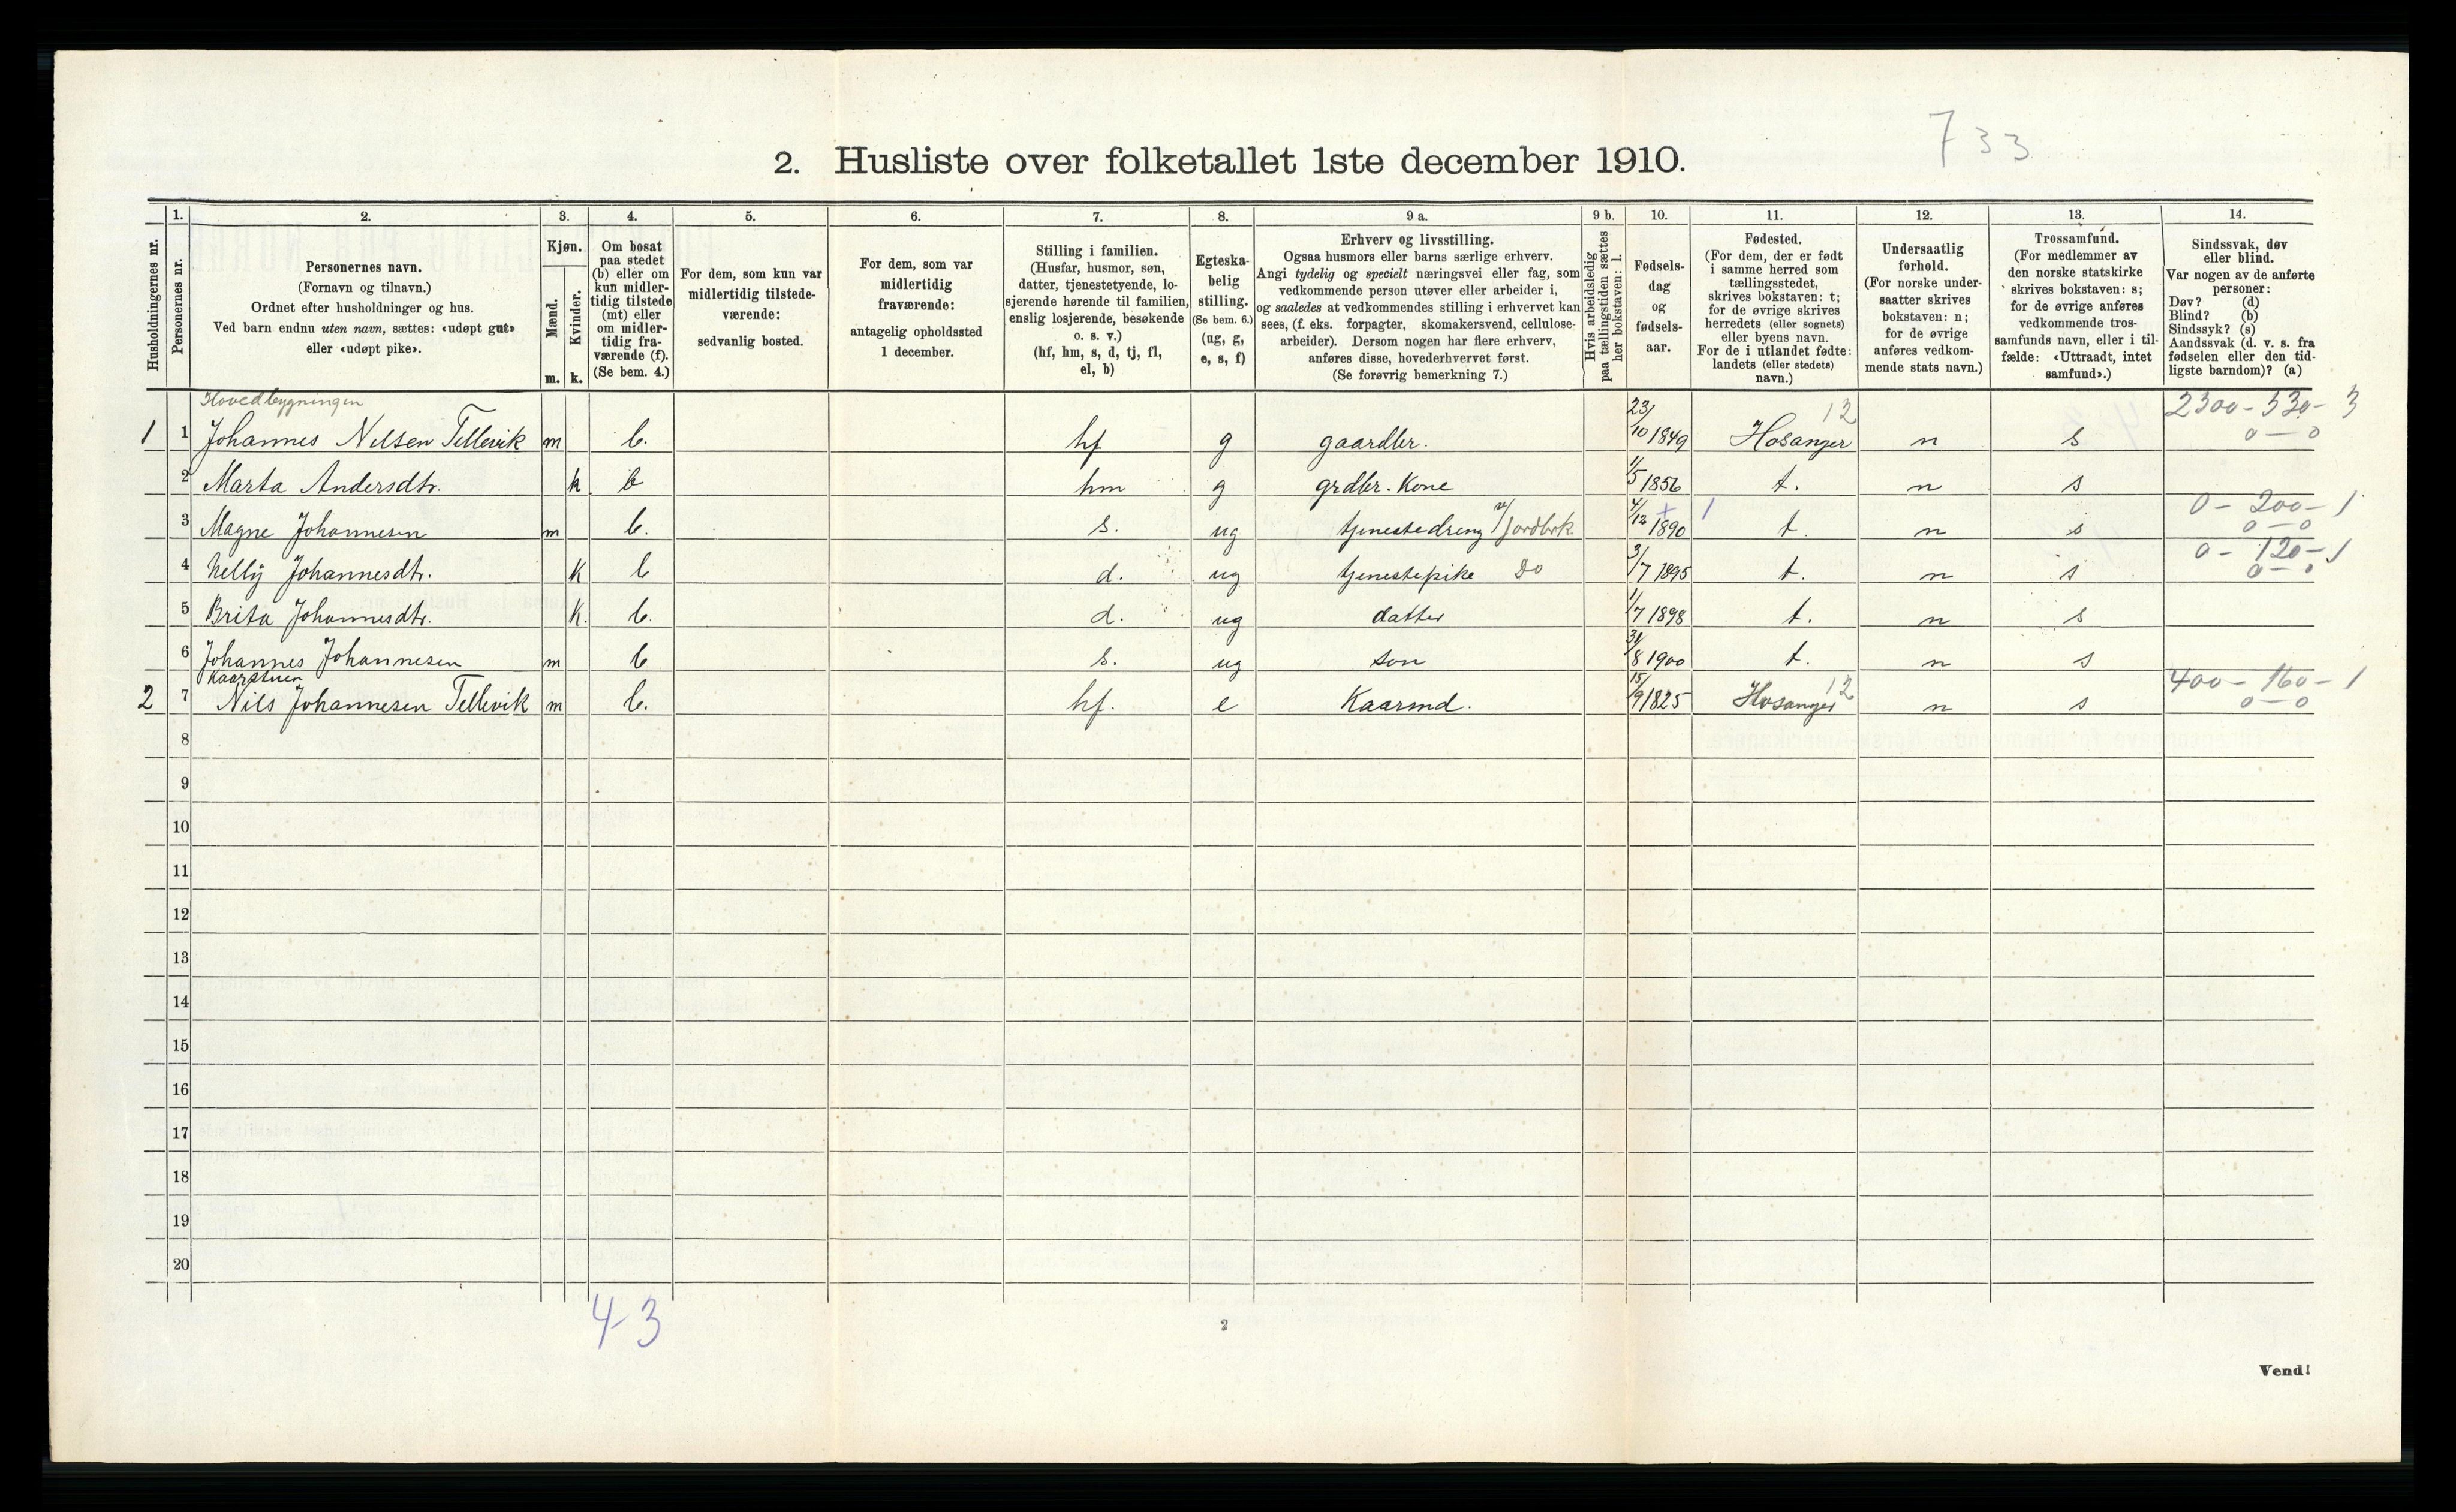 733
2. Husliste over folketallet 1ste december 1910.
Husholdningernes nr.
1. Personernes nr.
2. Personernes navn.
(Fornavn og tilnavn.)
Ordnet efter husholdninger og hus.
Ved barn endnu uten navn, sættes: «udøpt gut»
eller «udøpt pike».
3. Kjøn.
Mænd. m.
Kvinder. k.
4. Om bosat
paa stedet
(b) eller om
kun midler-
tidig tilstede
(mt) eller
om midler-
tidig fra-
værende (f).
(Se bem. 4.)
5. For dem, som kun var
midlertidig tilstede-
værende:
sedvanlig bosted.
6. For dem, som var
midlertidig
fraværende:
antagelig opholdssted
1 december.
7. Stilling i familien.
(Husfar, husmor, søn,
datter, tjenestetyende, lo-
sjerende hørende til familien,
enslig losjerende, besøkende
o. s. v.)
(hf, hm, s, d, tj, fl,
el, b)
8. Egteska-
belig
stilling.
(Se bem. 6.)
(ug, g,
e, s, f)
9 a. Erhverv og livsstilling.
Ogsaa husmors eller barns særlige erhverv.
Angi tydelig og specielt næringsvei eller fag, som
vedkommende person utøver eller arbeider i,
og saaledes at vedkommendes stilling i erhvervet kan
sees, (f. eks. forpagter, skomakersvend, cellulose-
arbeider). Dersom nogen har flere erhverv,
anføres disse, hovederhvervet først.
(Se forøvrig bemerkning 7.)
9 b. Hvis arbeidsledig
paa tællingstiden sættes
her bokstaven: l.
10. Fødsels-
dag
og
fødsels-
aar.
11. Fødested.
(For dem, der er født
i samme herred som
tællingsstedet,
skrives bokstaven: t;
for de øvrige skrives
herredets (eller sognets)
eller byens navn.
For de i utlandet fødte:
landets (eller stedets)
navn.)
12. Undersaatlig
forhold.
(For norske under-
saatter skrives
bokstaven: n;
for de øvrige
anføres vedkom-
mende stats navn.)
13. Trossamfund.
(For medlemmer av
den norske statskirke
skrives bokstaven: s;
for de øvrige anføres
vedkommende tros-
samfunds navn, eller i til-
fælde: «Uttraadt, intet
samfund».)
14. Sindssvak, døv
eller blind.
Var nogen av de anførte
personer:
Døv? (d)
Blind? (b)
Sindssyk? (s)
Aandssvak (d. v. s. fra
fødselen eller den tid-
ligste barndom)? (a)
Hovedbygningen 12 2300 - 530 - 3
1 1 Johannes Nilsen Tellevik m b. hf g gaardbr. 23/10 1849 Hosanger n s 0 - 0
2 Marta Andersdtr. k b hm g grdbr. Kone 1/5 1856 t. n s
0 - 200 - 1
3 Magne Johannesen m b. s. ug tjenestedreng v/ jordbrk. 4/12 1890 + 1 t. n s 0 - 0
0 - 120 - 1
4 Nelly Johannesdtr. k b d. ug tjenestepike Do 3/7 1895 t. n s 0 - 0
5 Brita Johannesdtr. k. b. d. ug datter 1/7 1898 t. n s
6 Johannes Johannesen m b s. ug son 31/8 1900 t. n s
Kaarstuen 12 400 - 160 - 1
2 7 Nils Johannesen Tellevik m b. hf. e Kaarmd. 15/9 1825 Hosanger n s 0 - 0
8
9
10
11
12
13
14
15
16
17
18
19
20
4-3
2
Vend!